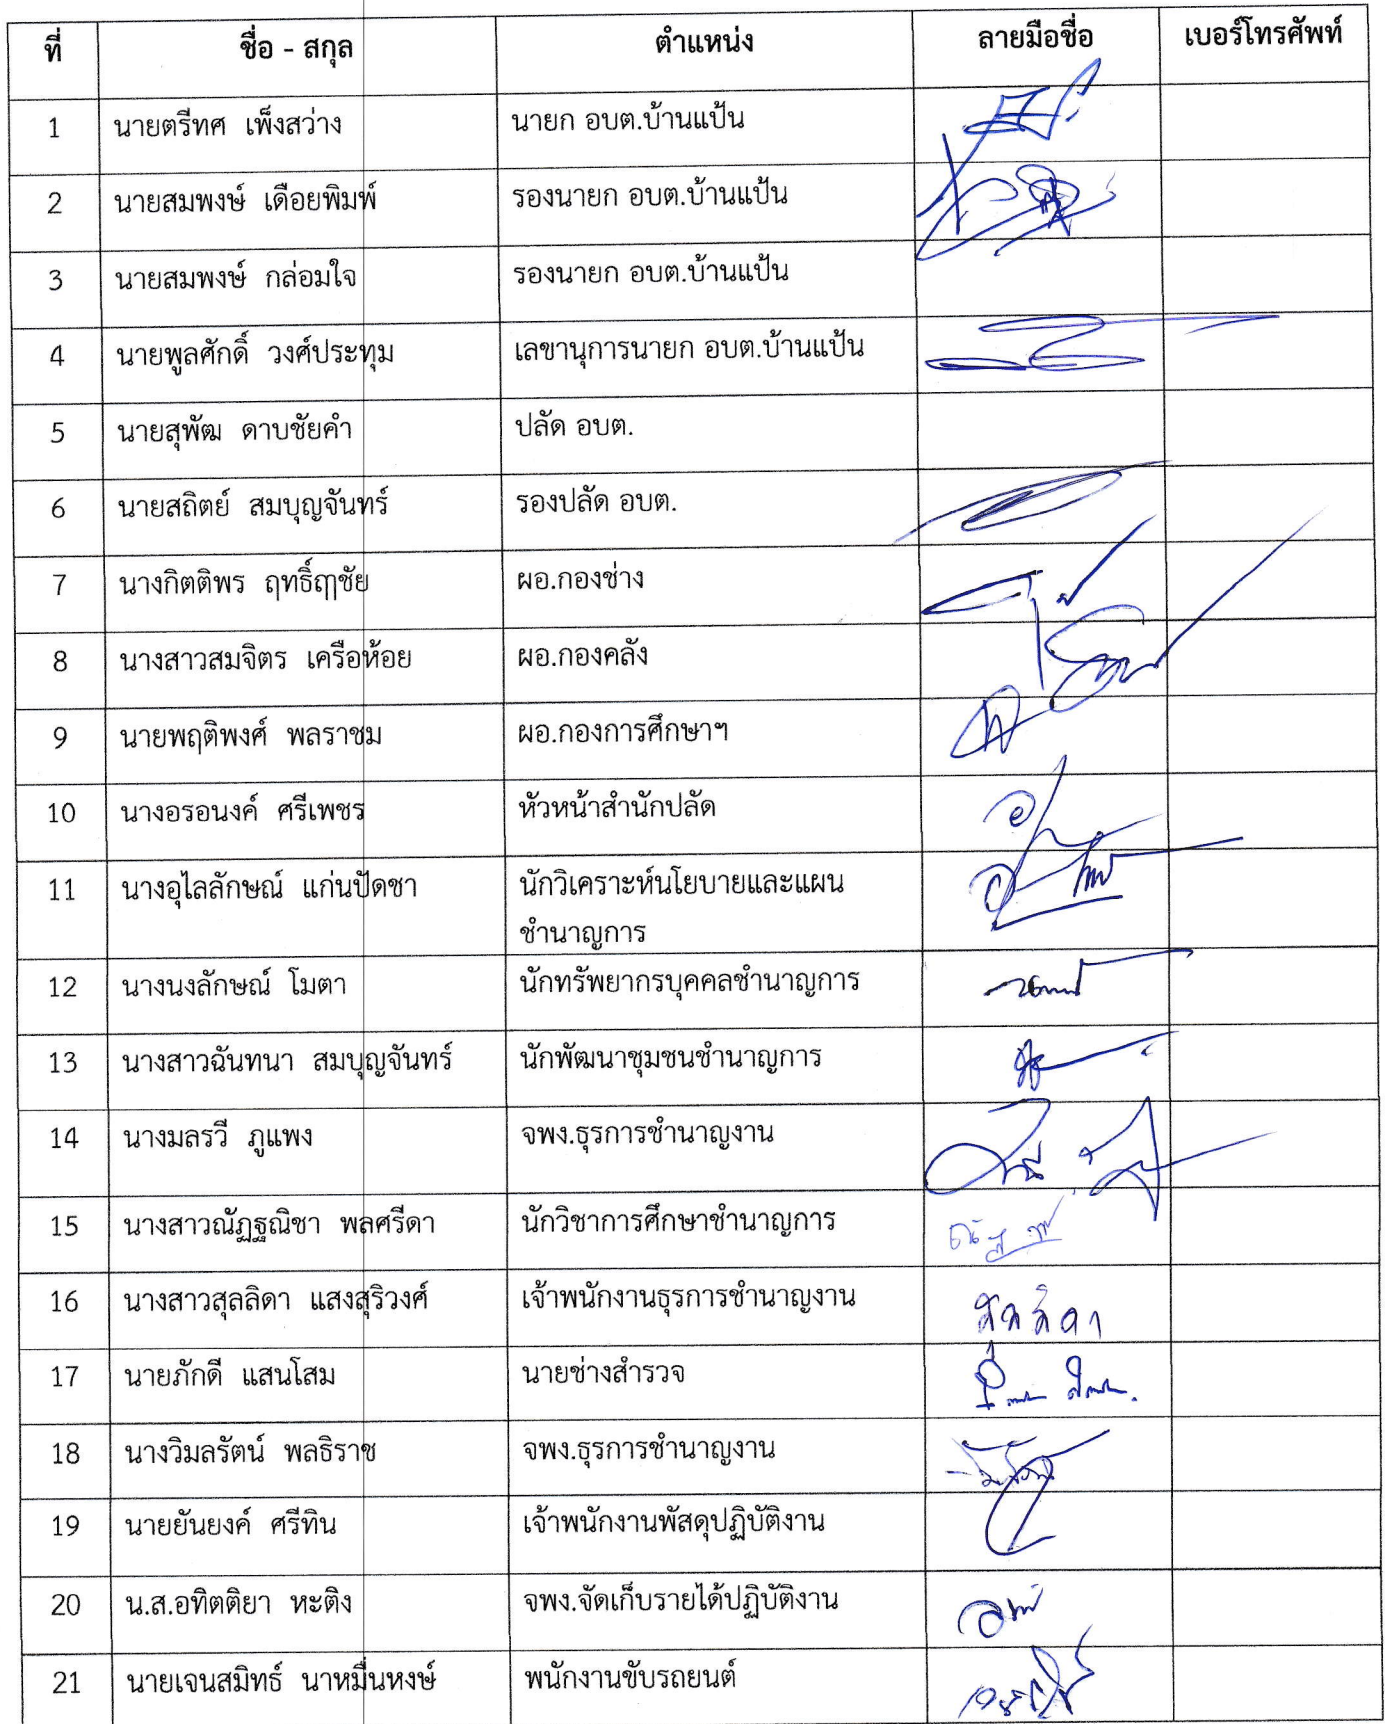 ที่ ชื่อ - สกุล ตำแหน่ง ลายมือชื่อ เบอร์โทรศัพท์
1 นายตรีทศ เพ็งสว่าง นายก อบต.บ้านแป้น
2 นายสมพงษ์ เดือยพิมพ์ รองนายก อบต.บ้านแป้น
3 นายสมพงษ์ กล่อมใจ รองนายก อบต.บ้านแป้น
4 นายพูลศักดิ์ วงศ์ประทุม เลขานุการนายก อบต.บ้านแป้น
5 นายสุพัฒ ดาบชัยคำ ปลัด อบต.
6 นายสถิตย์ สมบุญจันทร์ รองปลัด อบต.
7 นางกิตติพร ฤทธิ์ฤาชัย ผอ.กองช่าง
8 นางสาวสมจิตร เครือห้อย ผอ.กองคลัง
9 นายพฤติพงศ์ พลราชม ผอ.กองการศึกษาฯ
10 นางอรอนงค์ ศรีเพชร หัวหน้าสำนักปลัด
11 นางอุไลลักษณ์ แก่นปัดชา นักวิเคราะห์นโยบายและแผน
ชำนาญการ
12 นางนงลักษณ์ โมตา นักทรัพยากรบุคคลชำนาญการ
13 นางสาวฉันทนา สมบุญจันทร์ นักพัฒนาชุมชนชำนาญการ
14 นางมลรวี ภูแพง จพง.ธุรการชำนาญงาน
15 นางสาวณัฏฐณิชา พลศรีดา นักวิชาการศึกษาชำนาญการ
16 นางสาวสุลลิดา แสงสุริวงศ์ เจ้าพนักงานธุรการชำนาญงาน
17 นายภักดี แสนโสม นายช่างสำรวจ
18 นางวิมลรัตน์ พลธิราช จพง.ธุรการชำนาญงาน
19 นายยันยงค์ ศรีทิน เจ้าพนักงานพัสดุปฏิบัติงาน
20 น.ส.อทิตติยา หะติง จพง.จัดเก็บรายได้ปฏิบัติงาน
21 นายเจนสมิทธ์ นาหมื่นหงษ์ พนักงานขับรถยนต์